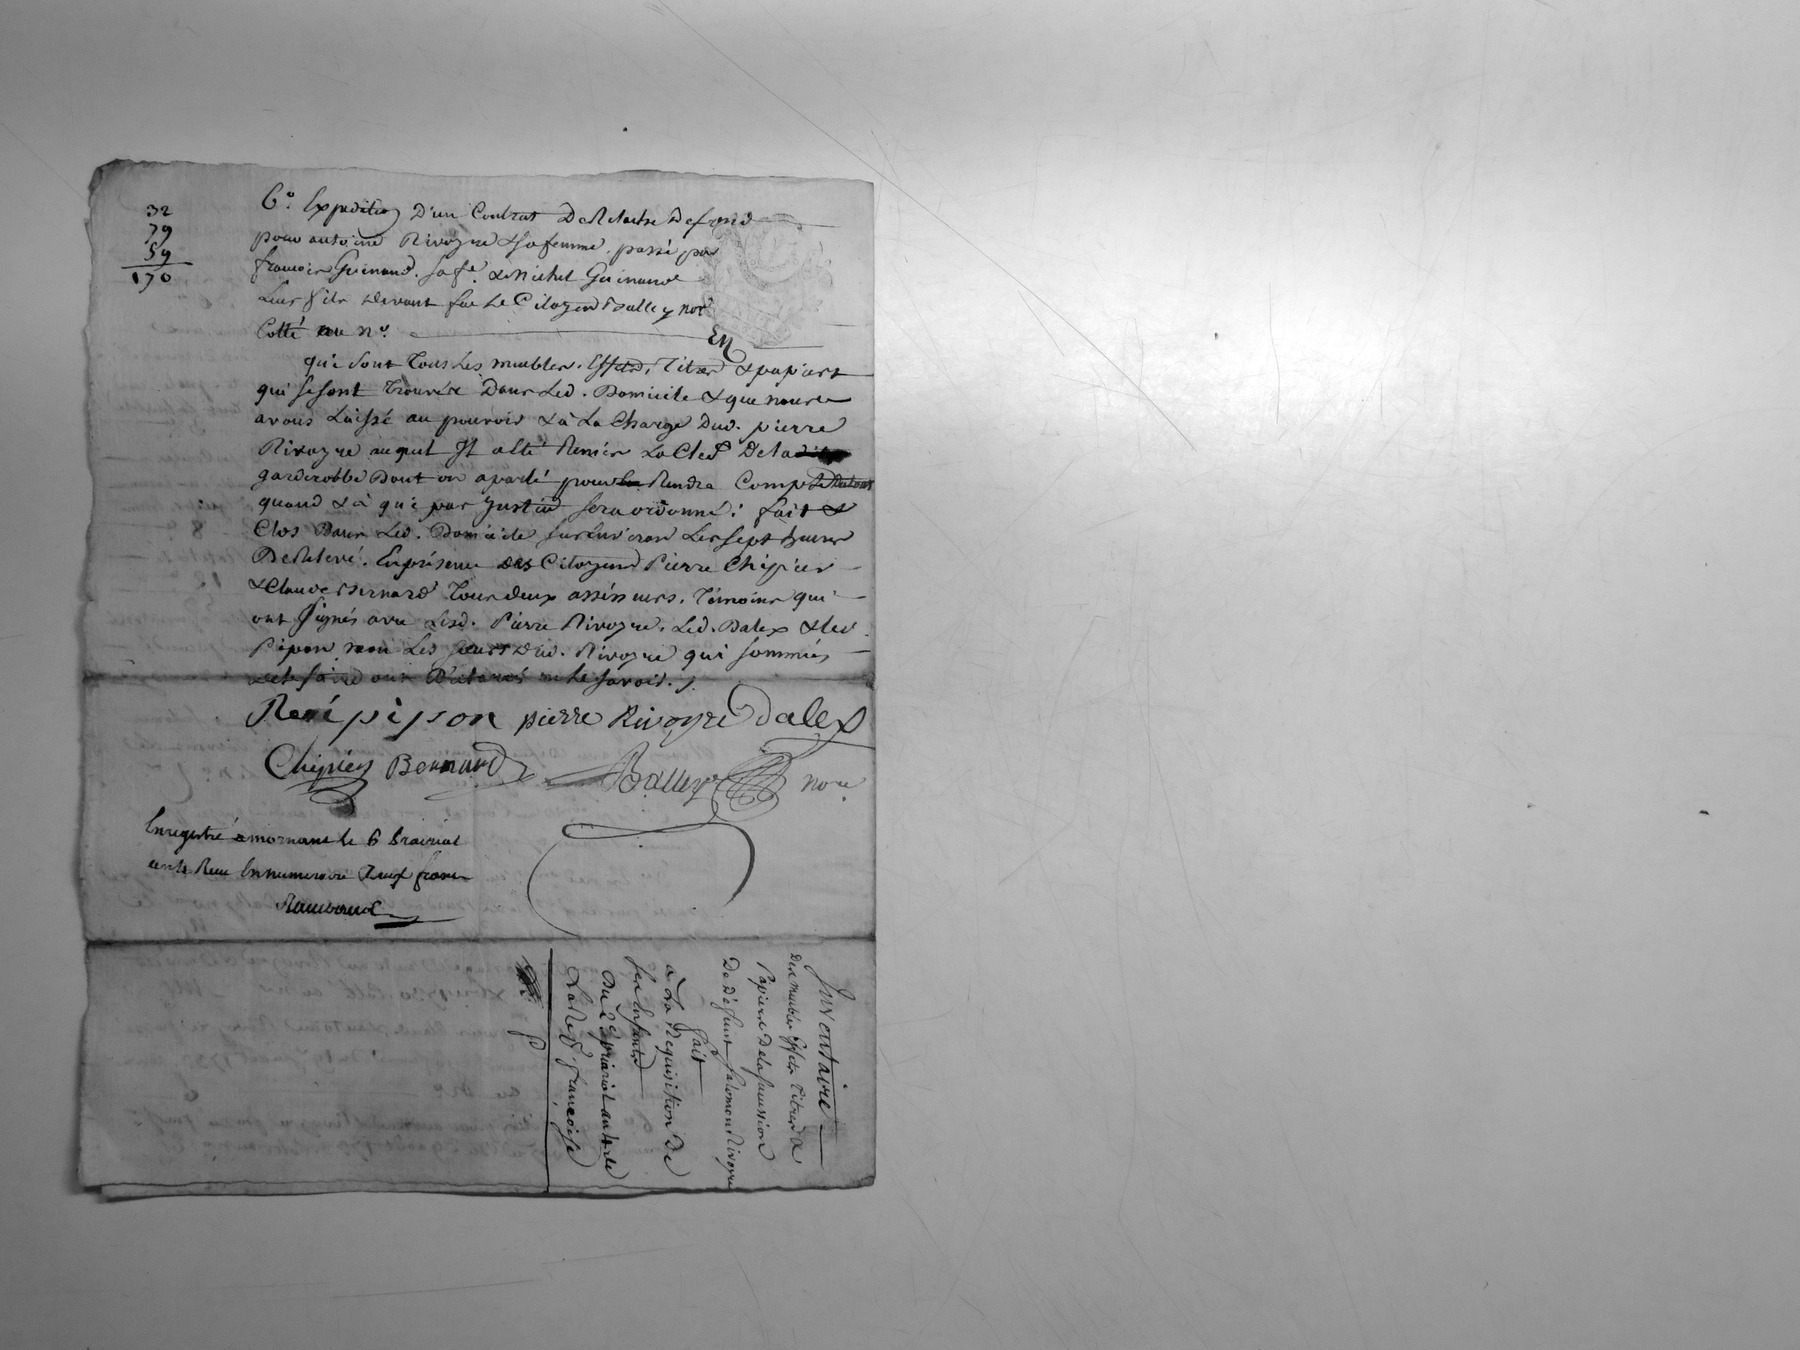 32
79
59
170
6.° Expedition d'un Contrat De Retraite de fond
pour antoine Rivoyre & sa femme passé par
françois Guinand. sa f.e & Michel Guinand
Leur fils devant feu Le Citoyen Balley nore
Cotté au n.°
qui sont Tous Les meubles. Effets, Titres & papiers
qui se sont Trouvés Dans Led. Domicile & que nous
avons Laissé au pouvoir & à La Charge Dud. pierre
Rivoyre auquel Il a été Remis La Clef De la
garderobbe Dont on a parlé pour Rendre Compte Du tout
quand & à qui par Justice sera ordonné: fait &
Clos Dans Led. Domicile sur Les sept heures
De Relevé. En présence des Citoyens Pierre Chipier
& Claude Bernard Tous deux assesseurs. Témoins qui
ont signés avec Lesd. Pierre Rivoyre, Led. Dalex & led.
Pipon non Les sœurs dud. Rivoyre qui sommées
de le faire ont Déclaré ne le savoir.
René pipon pierre Rivoyre Dalex
Chipier Bernard Balley nore
Enregistré a mornant le 6 Prairial
an 4 Reçu En numeraire Deux francs
Inventaire
Des meubles Effets Titres &
Papiers De la succession
De Défunt Salomon Rivoyre
fait
à La Requisition De
ses Enfants
Du 2 Prairial an 4 de
La Rep. françoise